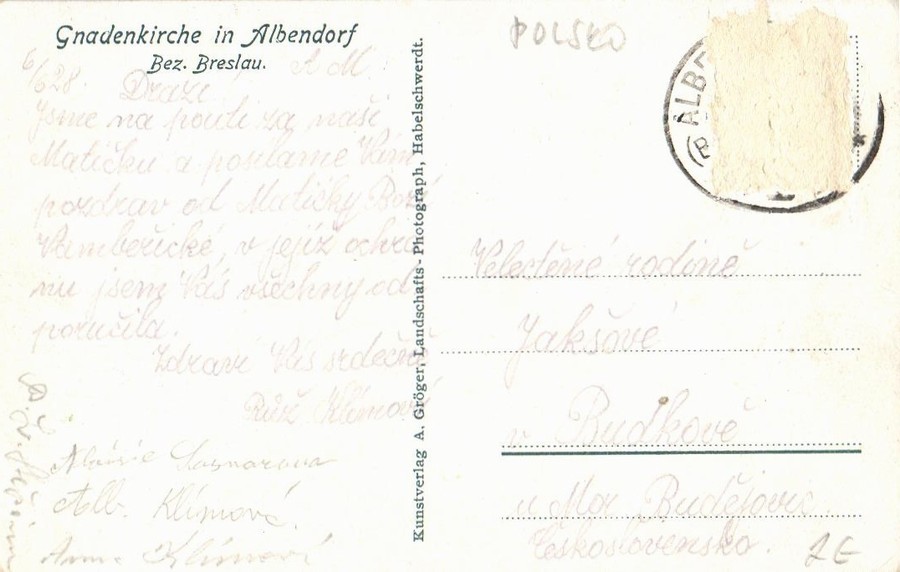 Gnadenkirche in Albendorf
Bez. Breslau.
POLSKO
ALBE
6/628.
A M.
Drazí
Jsme na pouti za naší
Matičku a posíláme Vám
pozdrav od Matičky Boží
Vambeřické, v jejíž ochra
nu jsem Vás všechny od
poručila.
Zdraví Vás srdečně
Růž Klímová
Klímová
Alb. Klímová.
Anna Klímová
Kunstverlag A. Gröger, Landschafts-Photograph, Habelschwerdt.
Velectěné rodině
Jakšově
v Budkově
u Mor Budějovic.
Československo.
2€